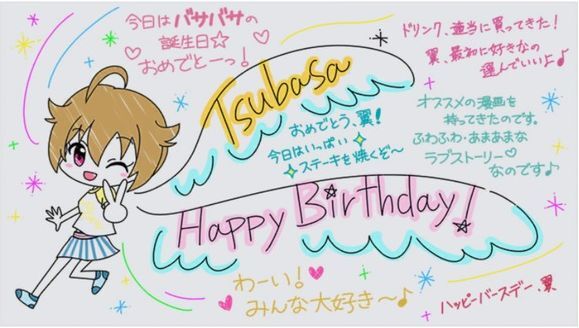 今日はバサバサの
誕生日☆
おめでとーっ！
ドリンク、適当に買ってきた！
翼、最初に好きなの
選んでいいよ♪
Tsubasa
おめでとう、翼！
今日はいっぱい
ステーキを焼くぞ～
オススメの漫画を
持ってきたのです。
ふわふわ・あまあまな
ラブストーリー♡
なのです♪
Happy Birthday!
わーい！
みんな大好き～♪
ハッピーバースデー、翼